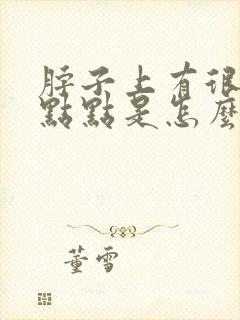 脖子上有很
點點是怎麼
董雪